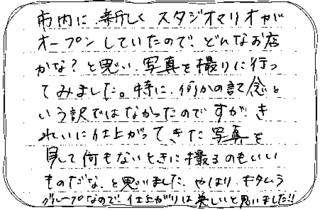 市内に、新しくスタジオマリオが
オープンしていたので、どんなお店
かな？と思い、写真を撮りに行っ
てみました。特に、何かの記念と
いう訳ではなかったのですが、き
れいに仕上がってきた写真を
見て何もないときに撮るのもいい
ものだな、と思いました。やはり、キタムラ
グループなので、仕上がりは美しいと思いました!!